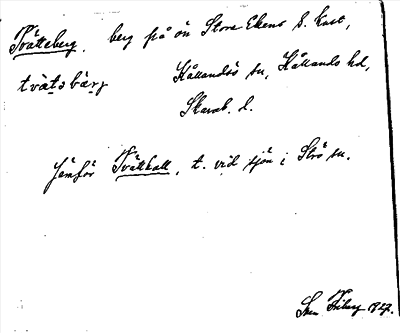 Tvätteberg. berg på ön Stora Ekens S. kust,
tvàtəbàrj Kållandsö sn, Kållands hd,
Skarab. l.
Jämför Tvätthall, t. vid sjön i Strö sn.
Sven Friberg 1927.